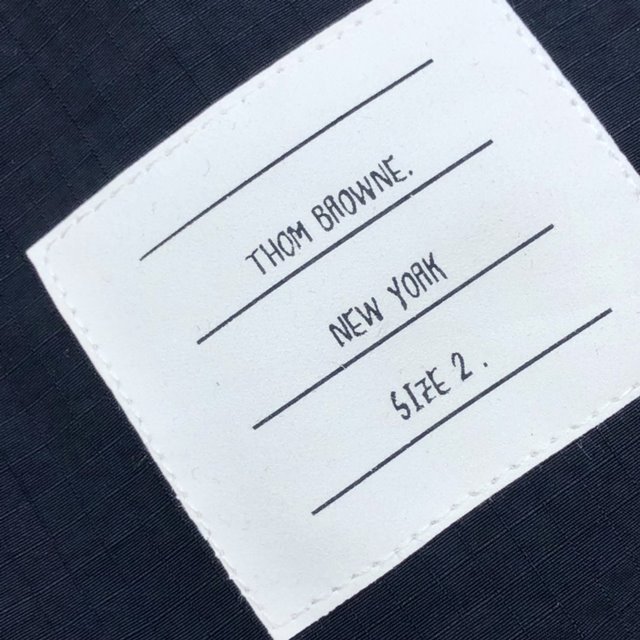 THOM BROWNE.
NEW YORK
SIZE 2.